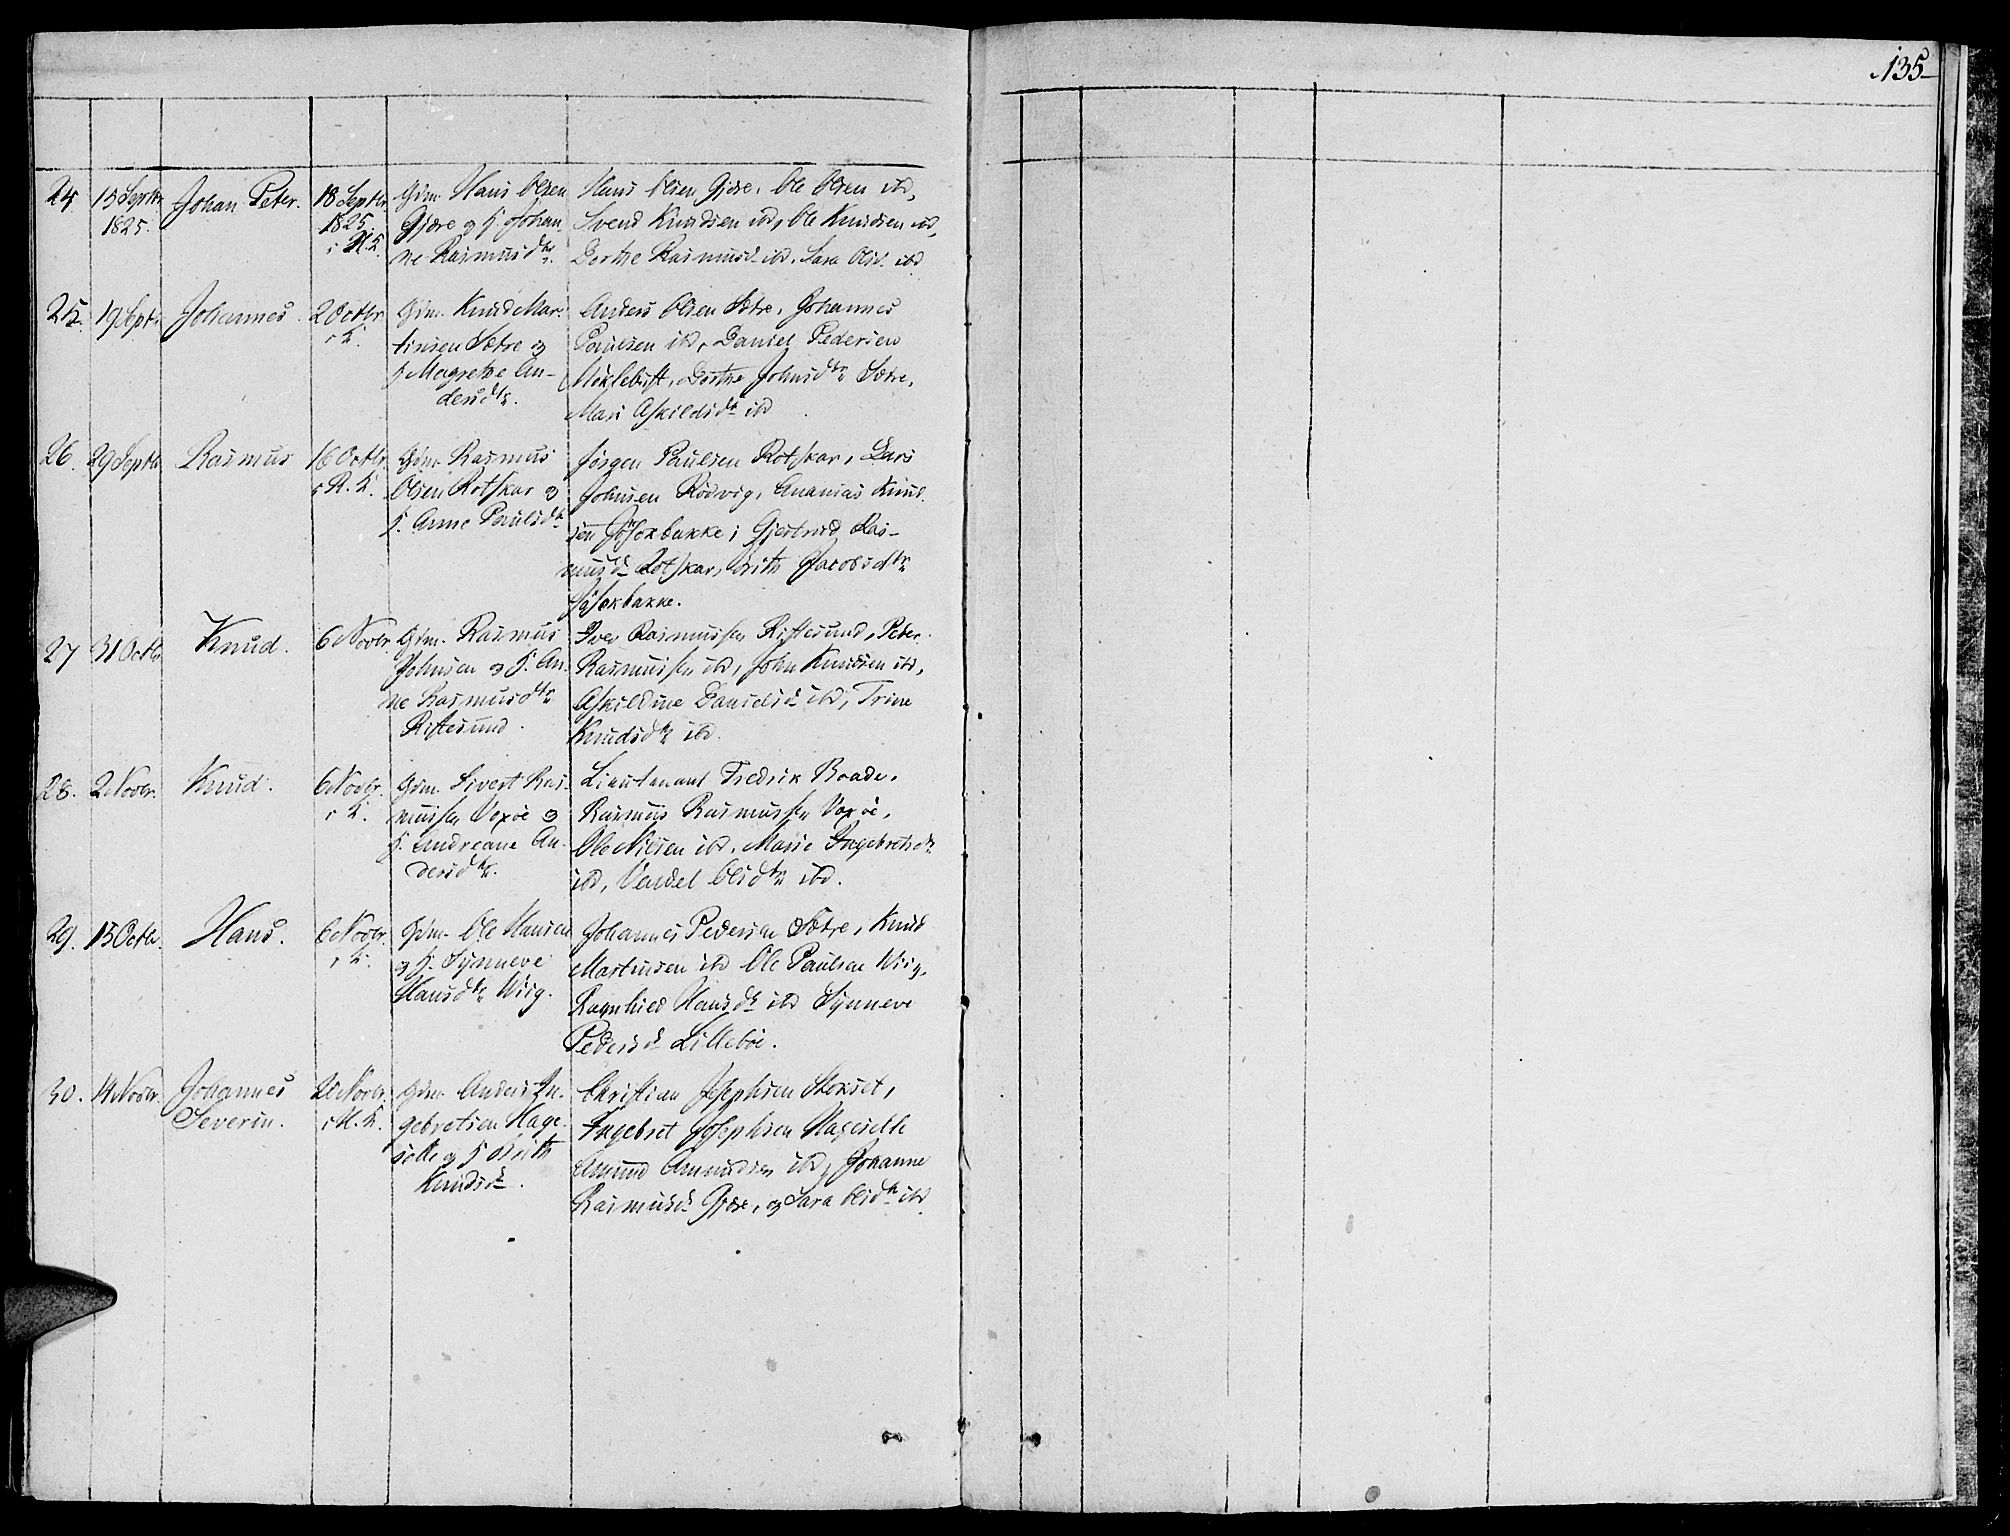 135
24. 15 Septbr 1825. Johan Peter. 18 Septbr 1825 i H.K.
Gdm. Hans Olsen
Gjære og H. Johan-
ne Rasmusdtr.
Hans Olsen Gjære, Ole Olsen ibd,
Svend Knudsen ibd, Ole Knudsen ibd,
Dorthe Rasmusd. ibd. Sara Olsd. ibd
25. 19 Septr. Johannes. 2 Octbr i K.
Gdm. Knud Mar-
tinsen Sætre og
H Magrethe An-
dersdtr.
Anders Olsen Sætre, Johannes
Paulsen ibd, Daniel Pedersen
Myklebust, Dorthe Johnsdtr Sætre,
Mari Askildsdtr ibd
26. 29 Septbr Rasmus 16 Octbr i K.
Gdm. Rasmus
Olsen Rotskar og
H. Anne Paulsdtr
Jørgen Paulsen Rotskar, Lars
Johnsen Rødvig, Ananias Knud-
sen; Gjertrud Ras-
musd. Rotskar, Brith Jacobsdtr
27 31 Octbr Knud. 6 Novbr
Gdm. Rasmus
Johnsen og H. An-
ne Rasmusdtr
Riftesund.
Iver Rasmussen Riftesund, Peter
Rasmussen ibd, John Knudsen ibd,
Askildine Danielsd. ibd, Trine
Knudsdtr ibd.
28. 2 Novbr. Knud. 6 Novbr. i K.
Gdm. Sivert Ras-
mussen Voxøe og
H. Andreane An-
dersdtr.
Lieutenant Fredrik Baade,
Rasmus Rasmussen Voxøe,
Ole Nilsen ibd. Marie Ingebretsdtr
ibd, Vendel Olsdtr ibd.
29. 15 Octbr. Hans. 6 Novbr. i K.
Gdm. Ole Hansen
og H. Synneve
Hansdtr Wiig.
Johannes Pedersen Sætre, Knud
Martinsen ibd Ole Paulsen Wiig,
Ragnhild Hansdtr ibd Synneve
Pedersd Lillebøe.
30. 14 Novbr. Johannes Severin. 20 Novbr. i H.K.
Gdm. Anders In-
gebretsen Hage-
sætte og H Brith
Knudsd.
Christian Josephsen Stokset,
Ingebret Josephsen Hagesætte
Amund Amundsen ibd, Johanne
Rasmusd. Gjære, og Sara Olsdtr ibd.